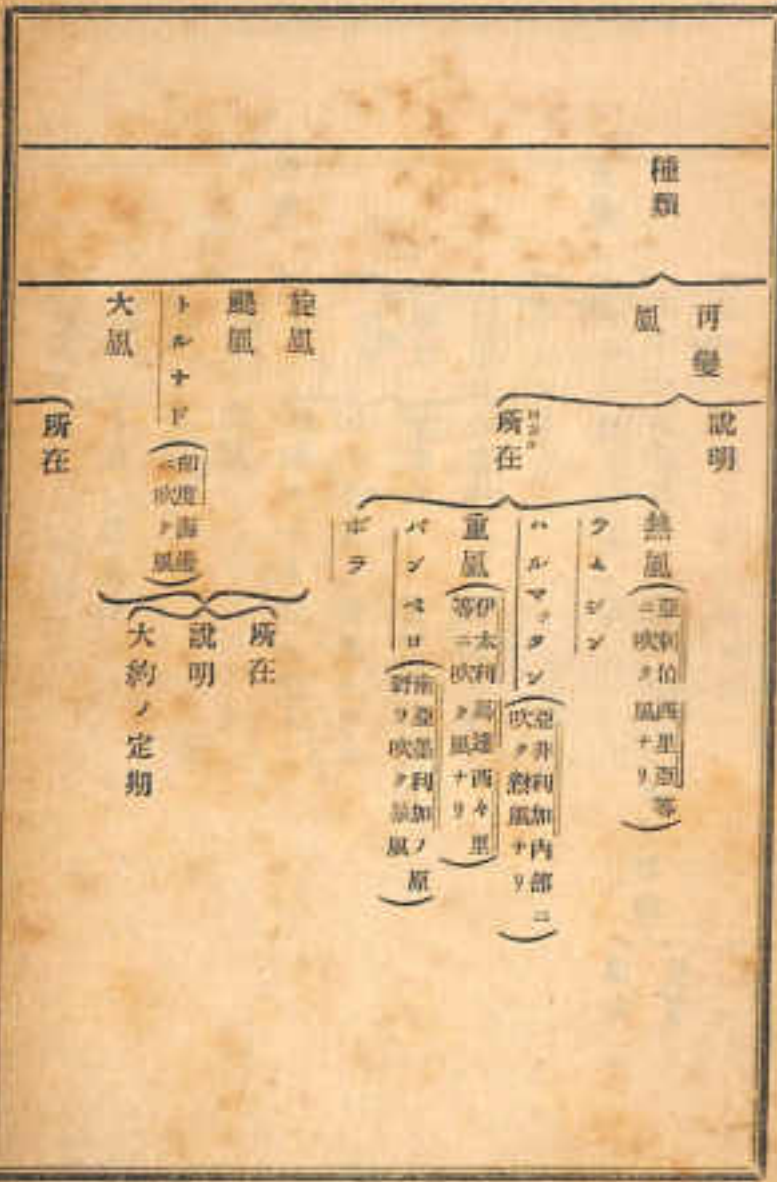 種類
可變
風
說明
所在
熱風(亞剌伯西里亞等
ニ吹ク風ナリ)
ラムシン
ハルマタン(亞弗利加內部ニ
吹ク熱風ナリ)
重風(伊太利馬達西々里
等ニ吹ク風ナリ)
パンペロ(南亞墨利加ノ原
野ヲ吹ク風)
ボラ
旋風
颶風
トルナド(印度海邊
ニ吹ク風)
大風
所在
說明
大約ノ定期
所在